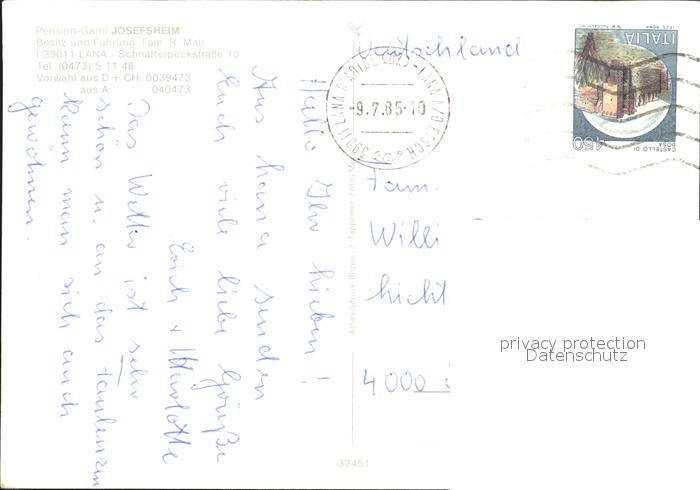 Pension-Garni JOSEFSHEIM
Besitz und Führung: Fam. R. Mair
I-39011 LANA - Schnatterpeckstraße 10
Tel. (0473) 5 11 48
Vorwahl aus D + CH: 0039473
aus A: 040473
Hallo Ihr Lieben!
Aus Lana senden
Euch viele liebe Grüße
Erich + Marlotte
Das Wetter ist sehr
schön u. an das Faulenzen
kann man sich auch
gewöhnen.
Deutschland
39011 LANA D'ADIGE (BZ) - LANA A.D. ETSCH
-9.7.85-10
ITALIA
450
CASTELLO DI
ROSA
Fam.
Willi
Licht
4000
Athesiadruck Bozen - J. Tappeiner Foto
32451
privacy protection
Datenschutz